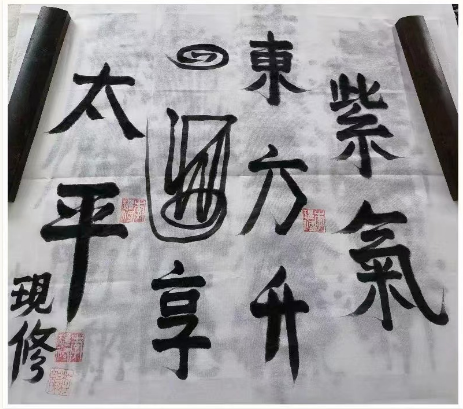 紫氣
東方升
享
太平
現修